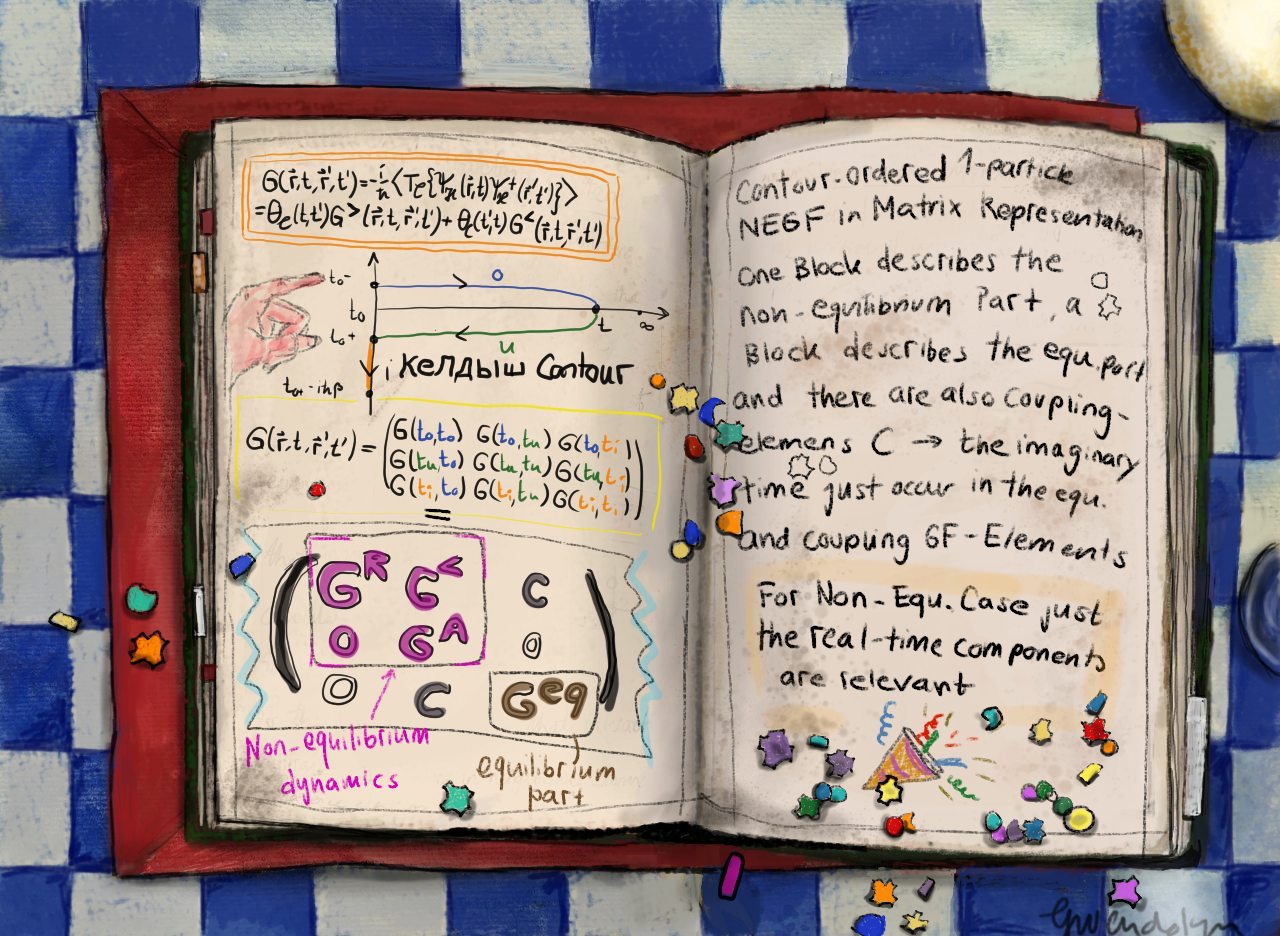 G(r⃗,t,r⃗',t')=-i/ħ⟨T_C{Ψ_H(r⃗,t)Ψ_H⁺(r⃗',t')}⟩
=θ_C(t,t')G^>(r⃗,t,r⃗',t')+θ_C(t',t)G^<(r⃗,t,r⃗',t')
t₀- o
t₀ t ∞
t₀+ u
i келдыш Contour
t₀₊-iħβ
G(r⃗,t,r⃗',t')= (G(t₀,t₀) G(t₀,t_u) G(t₀,t_i)
G(t_u,t₀) G(t_u,t_u) G(t_u,t_i)
G(t_i,t₀) G(t_i,t_u) G(t_i,t_i))
=
(G^R G^< C
0 G^A 0
0 C G^eq)
Non-equilibrium
dynamics
equilibrium
part
Contour-ordered 1-particle
NEGF in Matrix Representation
One Block describes the
non-equilibrium Part, a
Block describes the equ.part
and there are also Coupling-
elemens C → the imaginary
time just occur in the equ.
and coupling GF-Elements
For Non-Equ. Case just
the real-time components
are relevant
Gwendolyn